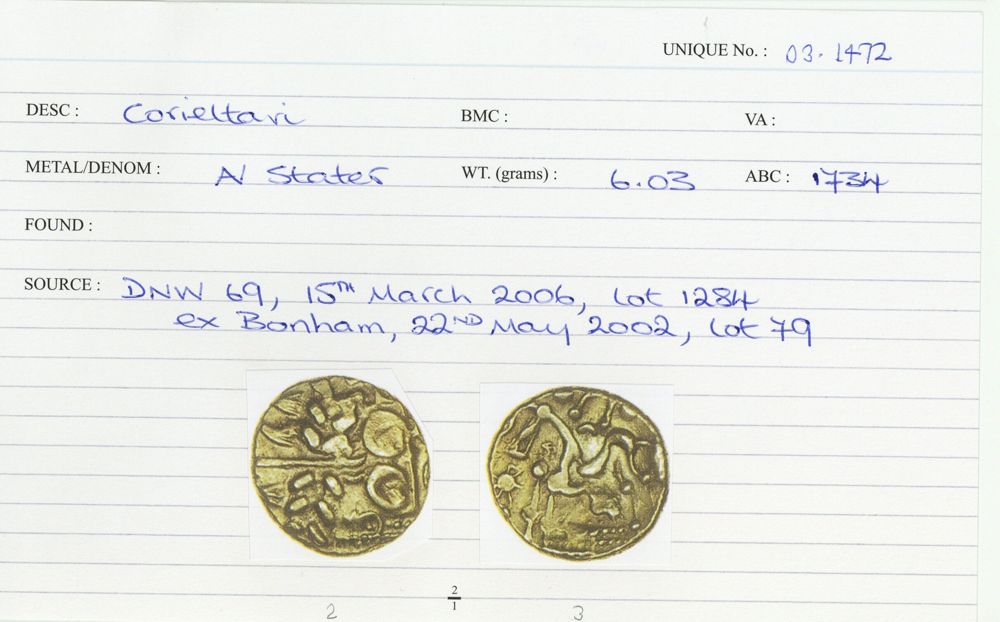 UNIQUE No. : 03.1472
DESC : Corieltavi BMC : VA :
METAL/DENOM : AV Stater WT. (grams) : 6.03 ABC : 1734
FOUND :
SOURCE : DNW 69, 15TH March 2006, Lot 1284
ex Bonham, 22ND May 2002, Lot 79
2/1
2 3